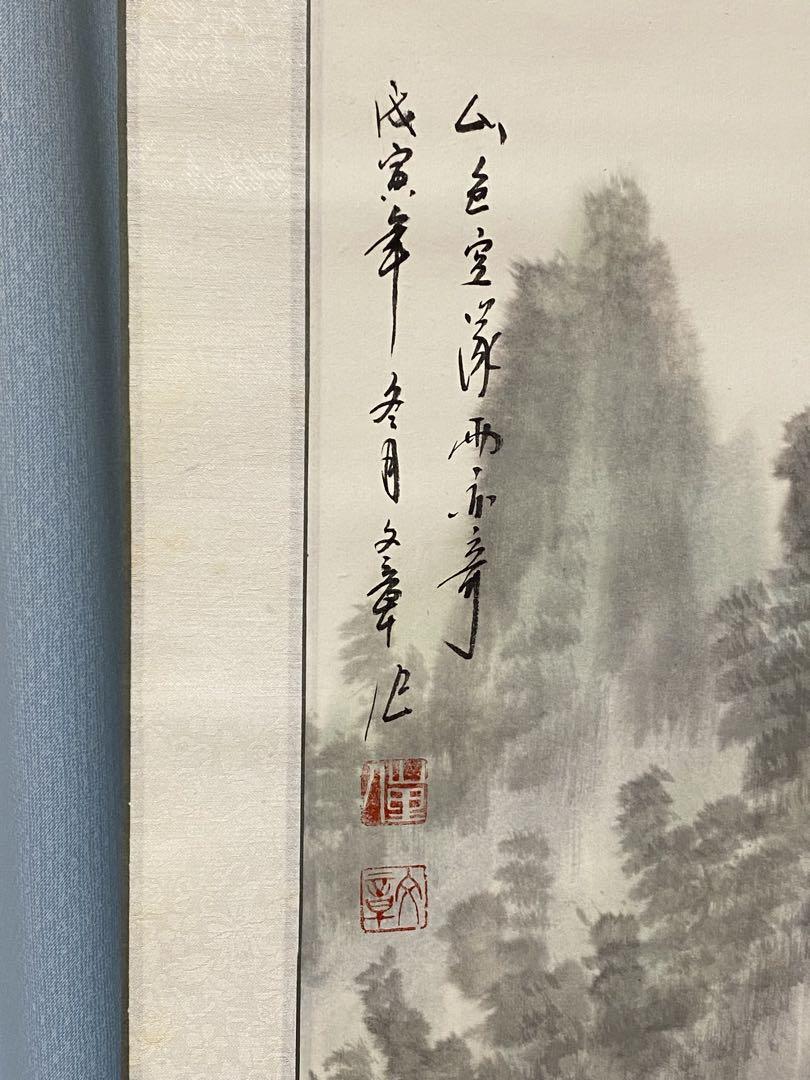 山色空濛雨亦奇
戊寅年冬月文章作
文章